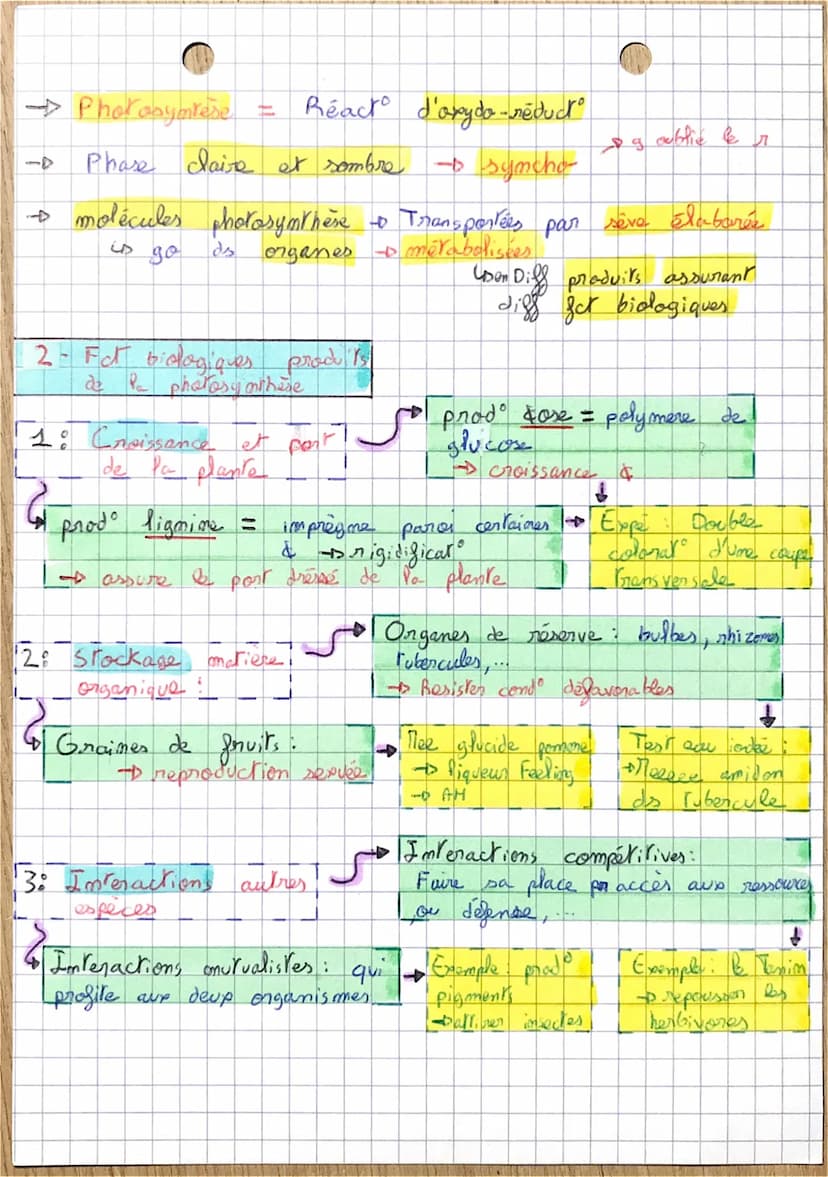 → Photosyntèse = Réact° d'oxydo-réduct°
→ g oublié le r
→ Phase claire et sombre → syncho
→ molécules photosynthèse → Transportées par sève élaborée
↳ go ds organes → métabolisées
↳ en Diff produits assurant
diff fct biologiques
2 - Fct biologiques produits
de la photosynthèse
prod° ¢ose = polymere de
glucose
→ croissance ¢
1: Croissance et port
de la plante
prod° lignine = imprègne paroi certaines
¢ → rigidificat°
→ assure le port dréssé de la plante
Expé : Double
colorat° d'une coupe
transversale
Organes de réserve : bulbes, rhizomes
tubercules, ...
→ Resister cond° défavorables
2: Stockage matière
organique :
Graines de fruits :
→ reproduction sexuée
glucide pomme
→ liqueur Feeling
→ AM
Test eau iodée :
amidon
ds tubercule
Interactions compétitives:
Faire sa place pr accès aux ressources
ou défense, ...
3: Interactions autres
espèces
Interactions mutualistes : qui
profite aux deux organismes
Exemple : prod°
pigments
→ attirer insectes
Exemple : le Tanin
→ repousser les
herbivores